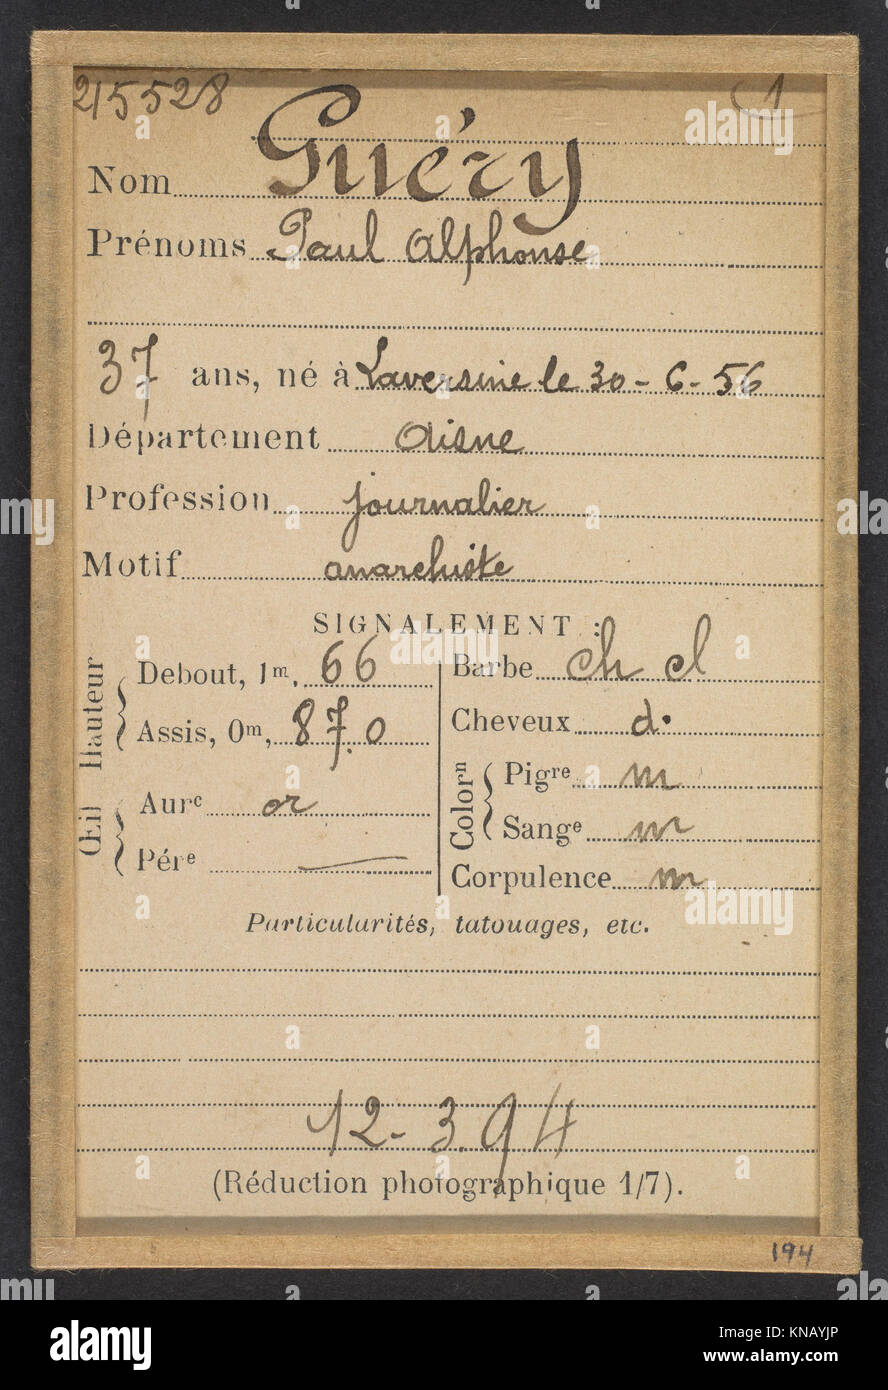 215528 1
Nom Guéry
Prénoms Paul Alphonse
37 ans, né à Laversine le 30-6-56
Département Aisne
Profession journalier
Motif anarchiste
SIGNALEMENT :
Hauteur
Debout, 1m, 66
Assis, 0m, 87.0
Œil
Aurᵉ or
Pérᵉ —
Barbe ch cl
Cheveux d.
Colorⁿ
Pigʳᵉ m
Sangᵉ m
Corpulence m
Particularités, tatouages, etc.
12-3.94
(Réduction photographique 1/7).
194
alamy
Image ID: KNAYJP
www.alamy.com